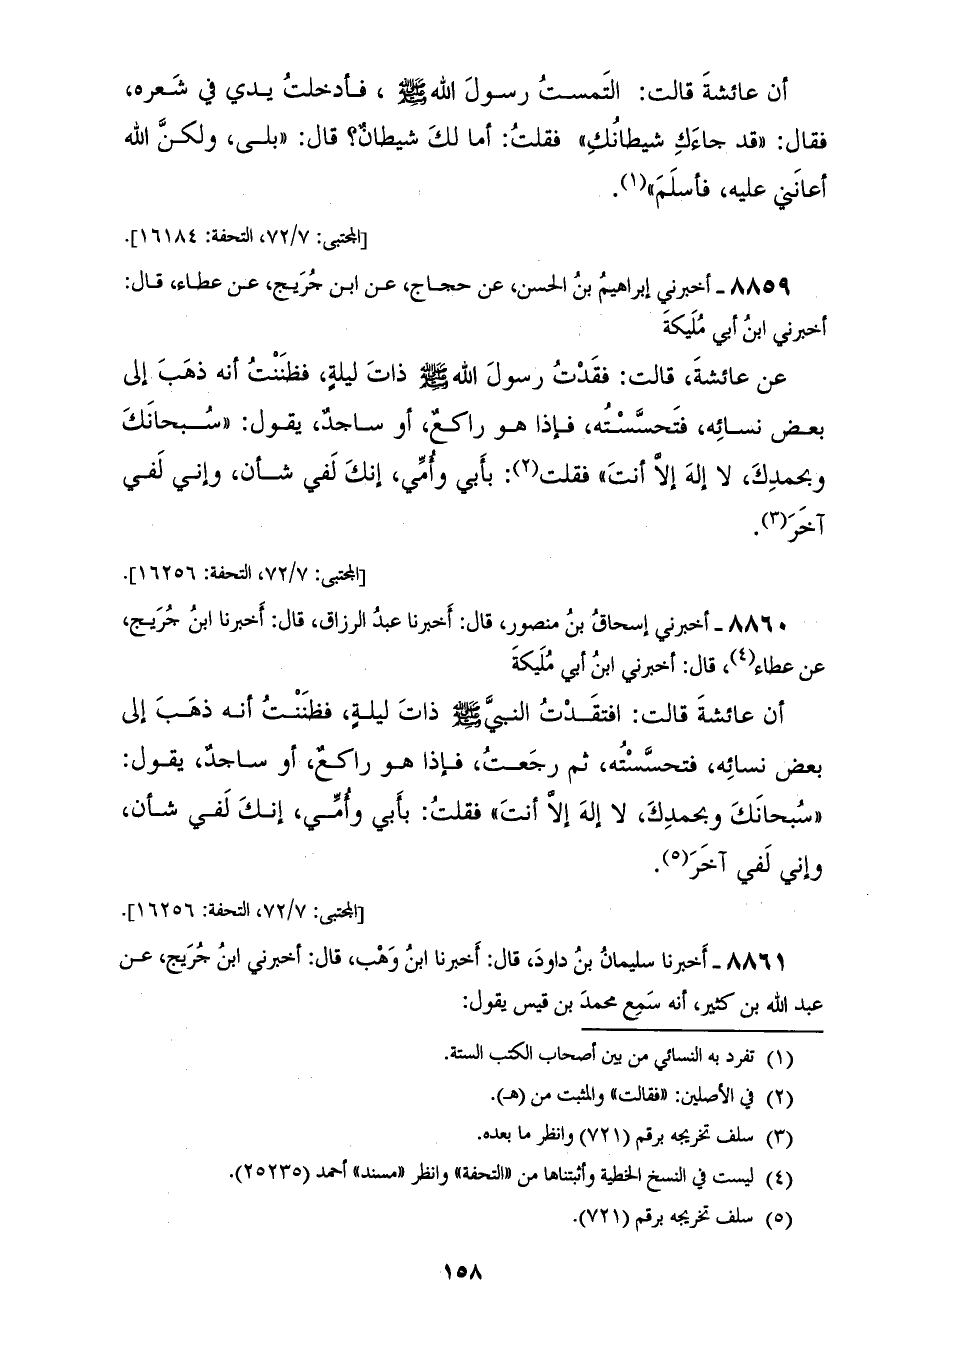 أن عائشةَ قالت: التَمستُ رسولَ الله ﷺ ، فأدخلتُ يدي في شَعره،
فقال: «قد جاءَكِ شيطانُكِ» فقلتُ: أما لكَ شيطانٌ؟ قال: «بلى، ولكنَّ الله
أعانَني عليه، فأسلَمَ»(١).
[المجتبى: ٧٢/٧، التحفة: ١٦١٨٤].
٨٨٥٩ ـ أخبرني إبراهيمُ بنُ الحسن، عن حجاج، عن ابن جُرَيج، عن عطاء، قال:
أخبرني ابنُ أبي مُلَيكةَ
عن عائشةَ، قالت: فقَدْتُ رسولَ الله ﷺ ذاتَ ليلةٍ، فظنَنْتُ أنه ذهَبَ إلى
بعض نسائِه، فتَحسَّسْتُه، فإذا هو راكعٌ، أو ساجدٌ، يقول: «سُبحانَكَ
وبحمدِكَ، لا إلهَ إلاَّ أنتَ» فقلت(٢): بأَبي وأُمِّي، إنكَ لَفي شأن، وإني لَفي
آخَرَ(٣).
[المجتبى: ٧٢/٧، التحفة: ١٦٢٥٦].
٨٨٦٠ ـ أخبرني إسحاقُ بنُ منصور، قال: أَخبرنا عبدُ الرزاق، قال: أَخبرنا ابنُ جُرَيج،
عن عطاء(٤)، قال: أخبرني ابنُ أبي مُلَيكةَ
أن عائشةَ قالت: افتقَدْتُ النبيَّ ﷺ ذاتَ ليلةٍ، فظنَنْتُ أنه ذهَبَ إلى
بعض نسائِه، فتحسَّسْتُه، ثم رجَعتُ، فإذا هو راكعٌ، أو ساجدٌ، يقول:
«سُبحانَكَ وبحمدِكَ، لا إلهَ إلاَّ أنتَ» فقلتُ: بأَبي وأُمِّي، إنكَ لَفي شأن،
وإني لَفي آخَرَ(٥).
[المجتبى: ٧٢/٧، التحفة: ١٦٢٥٦].
٨٨٦١ ـ أَخبرنا سليمانُ بنُ داودَ، قال: أَخبرنا ابنُ وَهْب، قال: أخبرني ابنُ جُرَيج، عن
عبد الله بن كثير، أنه سَمِع محمدَ بن قيس يقول:
(١) تفرد به النسائي من بين أصحاب الكتب الستة.
(٢) في الأصلين: «فقالت» والمثبت من (هـ).
(٣) سلف تخريجه برقم (٧٢١) وانظر ما بعده.
(٤) ليست في النسخ الخطية وأثبتناها من «التحفة» وانظر «مسند» أحمد (٢٥٢٣٥).
(٥) سلف تخريجه برقم (٧٢١).
١٥٨